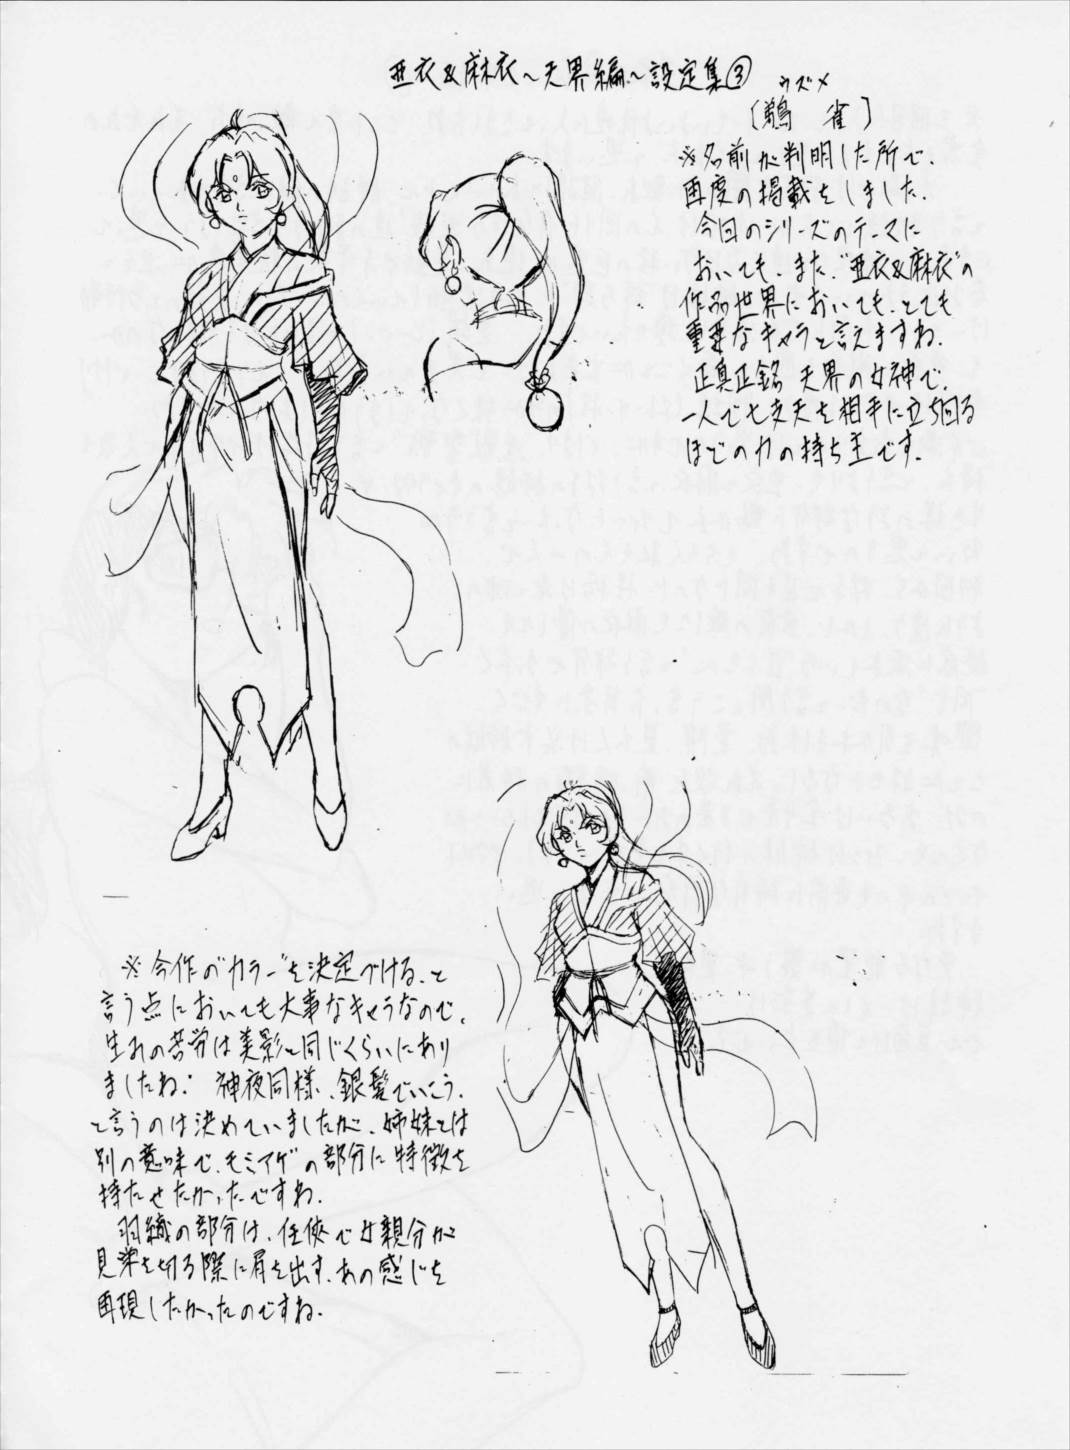 亜衣&麻衣～天界編～設定集③
ウズメ
〔鵜 雀〕
※名前が判明した所で、
再度の掲載をしました。
今回のシリーズのテーマに
おいても、また、"亜衣&麻衣"の
作品世界においても、とても
重要なキャラと言えますね。
正真正銘 天界の女神で、
一人で七支天を相手に立ち回る
ほどの力の持ち主です。
※今作の"カラー"を決定づける、と
言う点においても大事なキャラなので、
生れの苦労は美影と同じくらいにあり
ましたね。 神夜同様、銀髪でいこう、
と言うのは決めていましたが、姉妹とは
別の意味で、モミアゲの部分に特徴を
持たせたかったですね。
羽織の部分は、任侠で女親分が
見栄を切る際に肩を出す、あの感じを
再現したかったのですね。